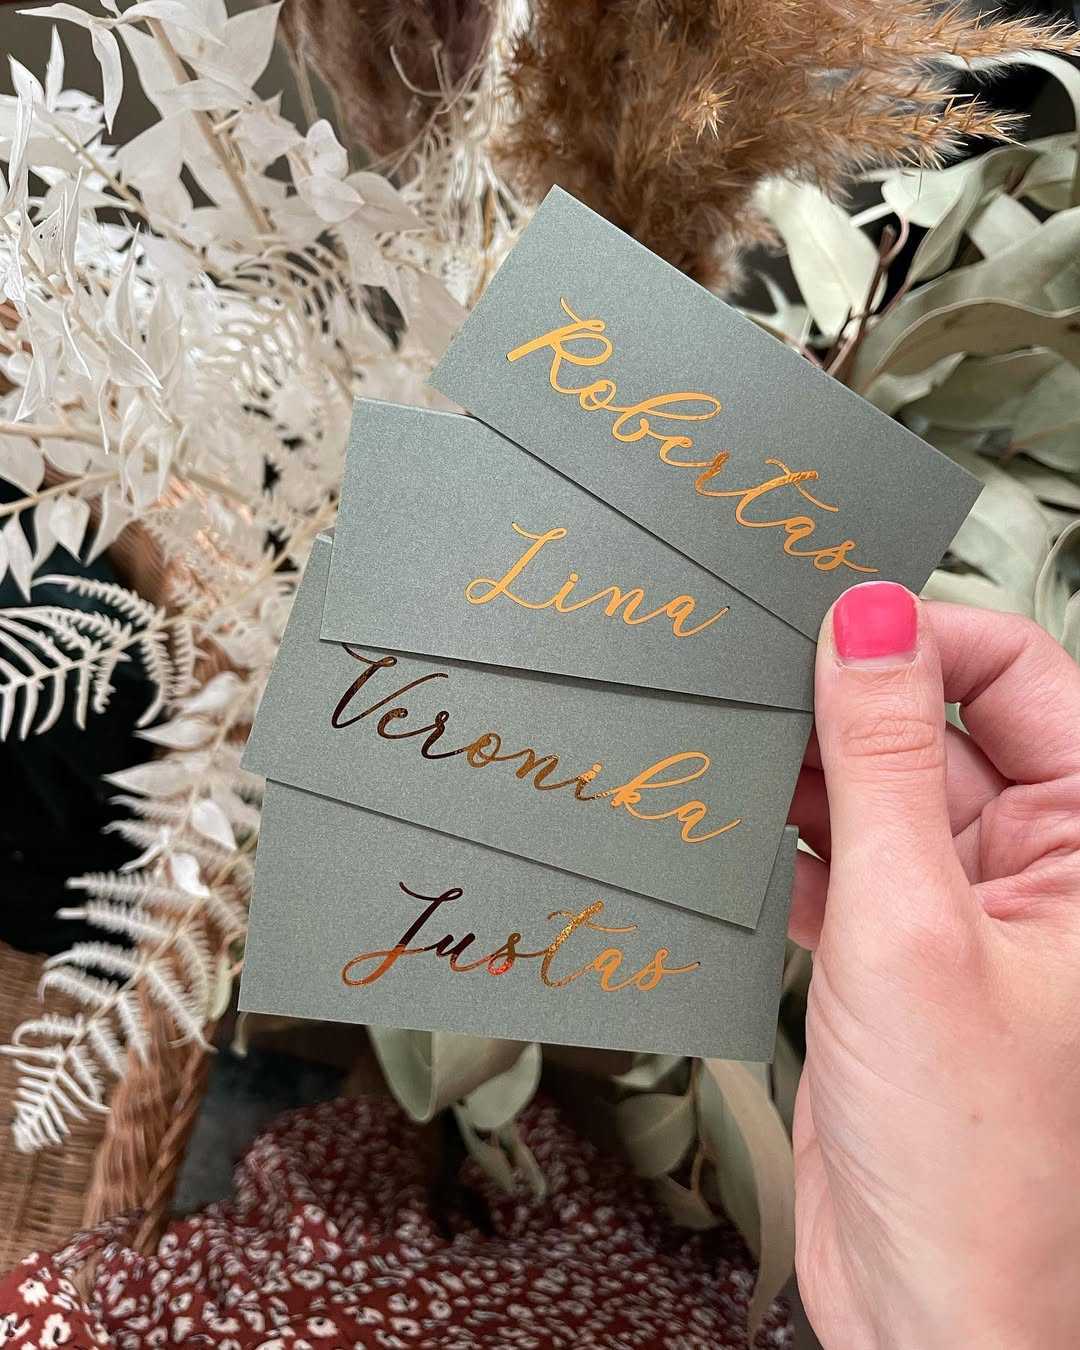 Robertas
Lina
Veronika
Justas